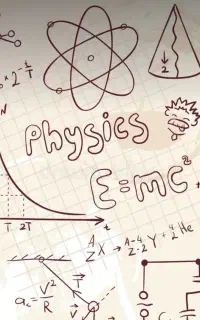 2
Physics
E=mc²
T 2T t
A/Z X → A-4/Z-2 Y + 4/2 He
a꜀ = V²/R
T
V